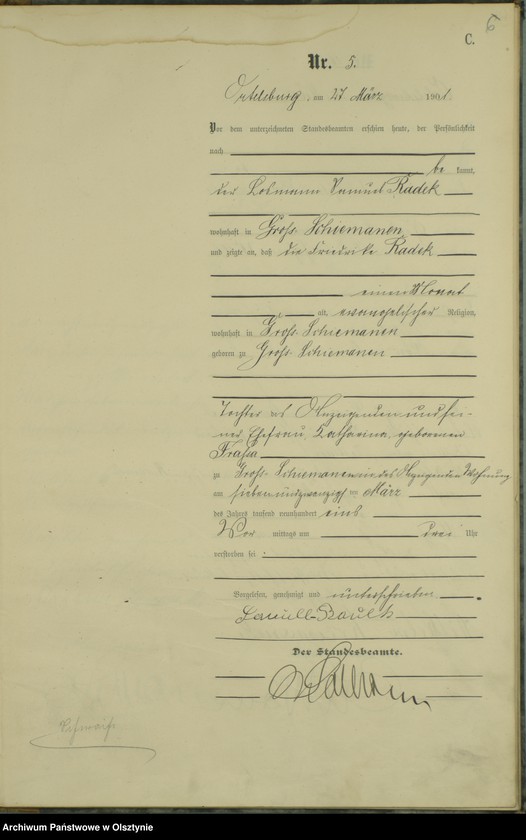 C.
Nr. 5.
Ortelsburg, am 27 März 1901.
Vor dem unterzeichneten Standesbeamten erschien heute, der Persönlichkeit
nach
be kannt,
der Losmann Samuel Radek
wohnhaft in Groß Schiemanen
und zeigte an, daß die Friedrike Radek
einen Monat
alt, evangelischer Religion,
wohnhaft in Groß Schiemanen
geboren zu Groß Schiemanen
Tochter des Anzeigenden und sei-
ner Ehefrau Katharina geborenen
zu Groß Schiemanen in des Anzeigenden Wohnung
am siebenundzwanzigsten März
des Jahres tausend neunhundert eins
Vor mittags um drei Uhr
verstorben sei.
Vorgelesen, genehmigt und unterschrieben.
Der Standesbeamte.
Archiwum Państwowe w Olsztynie